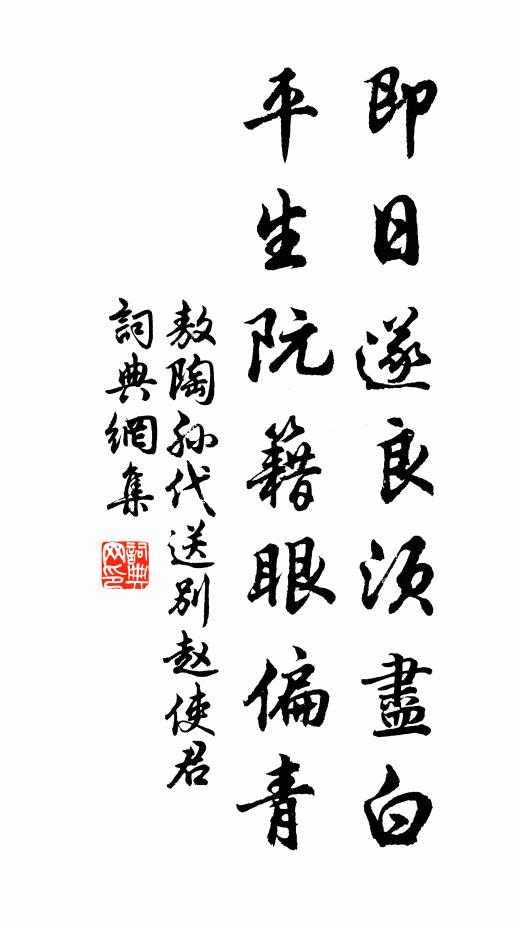 即日遂良須盡白
平生阮籍眼偏青
敖陶孫代送別赵使君
詞典網集
詞典网印